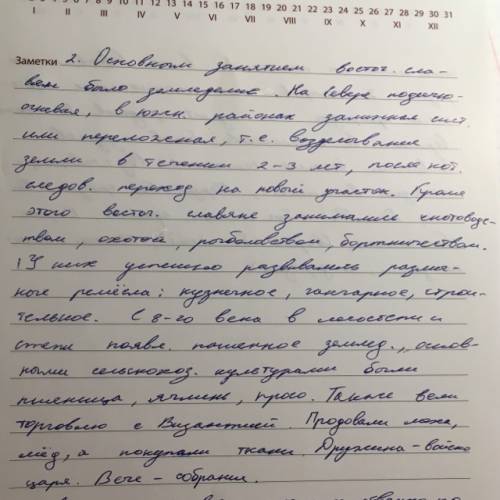 8 9 10 11 12 13 14 15 16 17 18 19 20 21 22 23 24 25 26 27 28 29 30 31
I II III IV V VI VII VIII IX X XI XII
Заметки 2. Основным занятием восточ. сла-
вян было земледелие. На Севере подсечно-
огневая, в южн. районах залежная сист.
или переложная, т.е. возделывание
земли в течении 2-3 лет, после кот.
следов. переход на новый участок. Кроме
этого восточ. славяне занимались скотоводс-
твом, охотой, рыболовством, бортничеством.
У них успешно развивались различ-
ные ремёсла: кузнечное, гончарное, строи-
тельное. С 8-го века в лесостепи и
степи появл. пашенное землед., основ-
ными сельскохоз. культурами были
пшеница, ячмень, просо. Также вели
торговлю с Византией. Продовали меха,
мёд, а покупали ткани. Дружина - войско
царя. Вече - собрание.